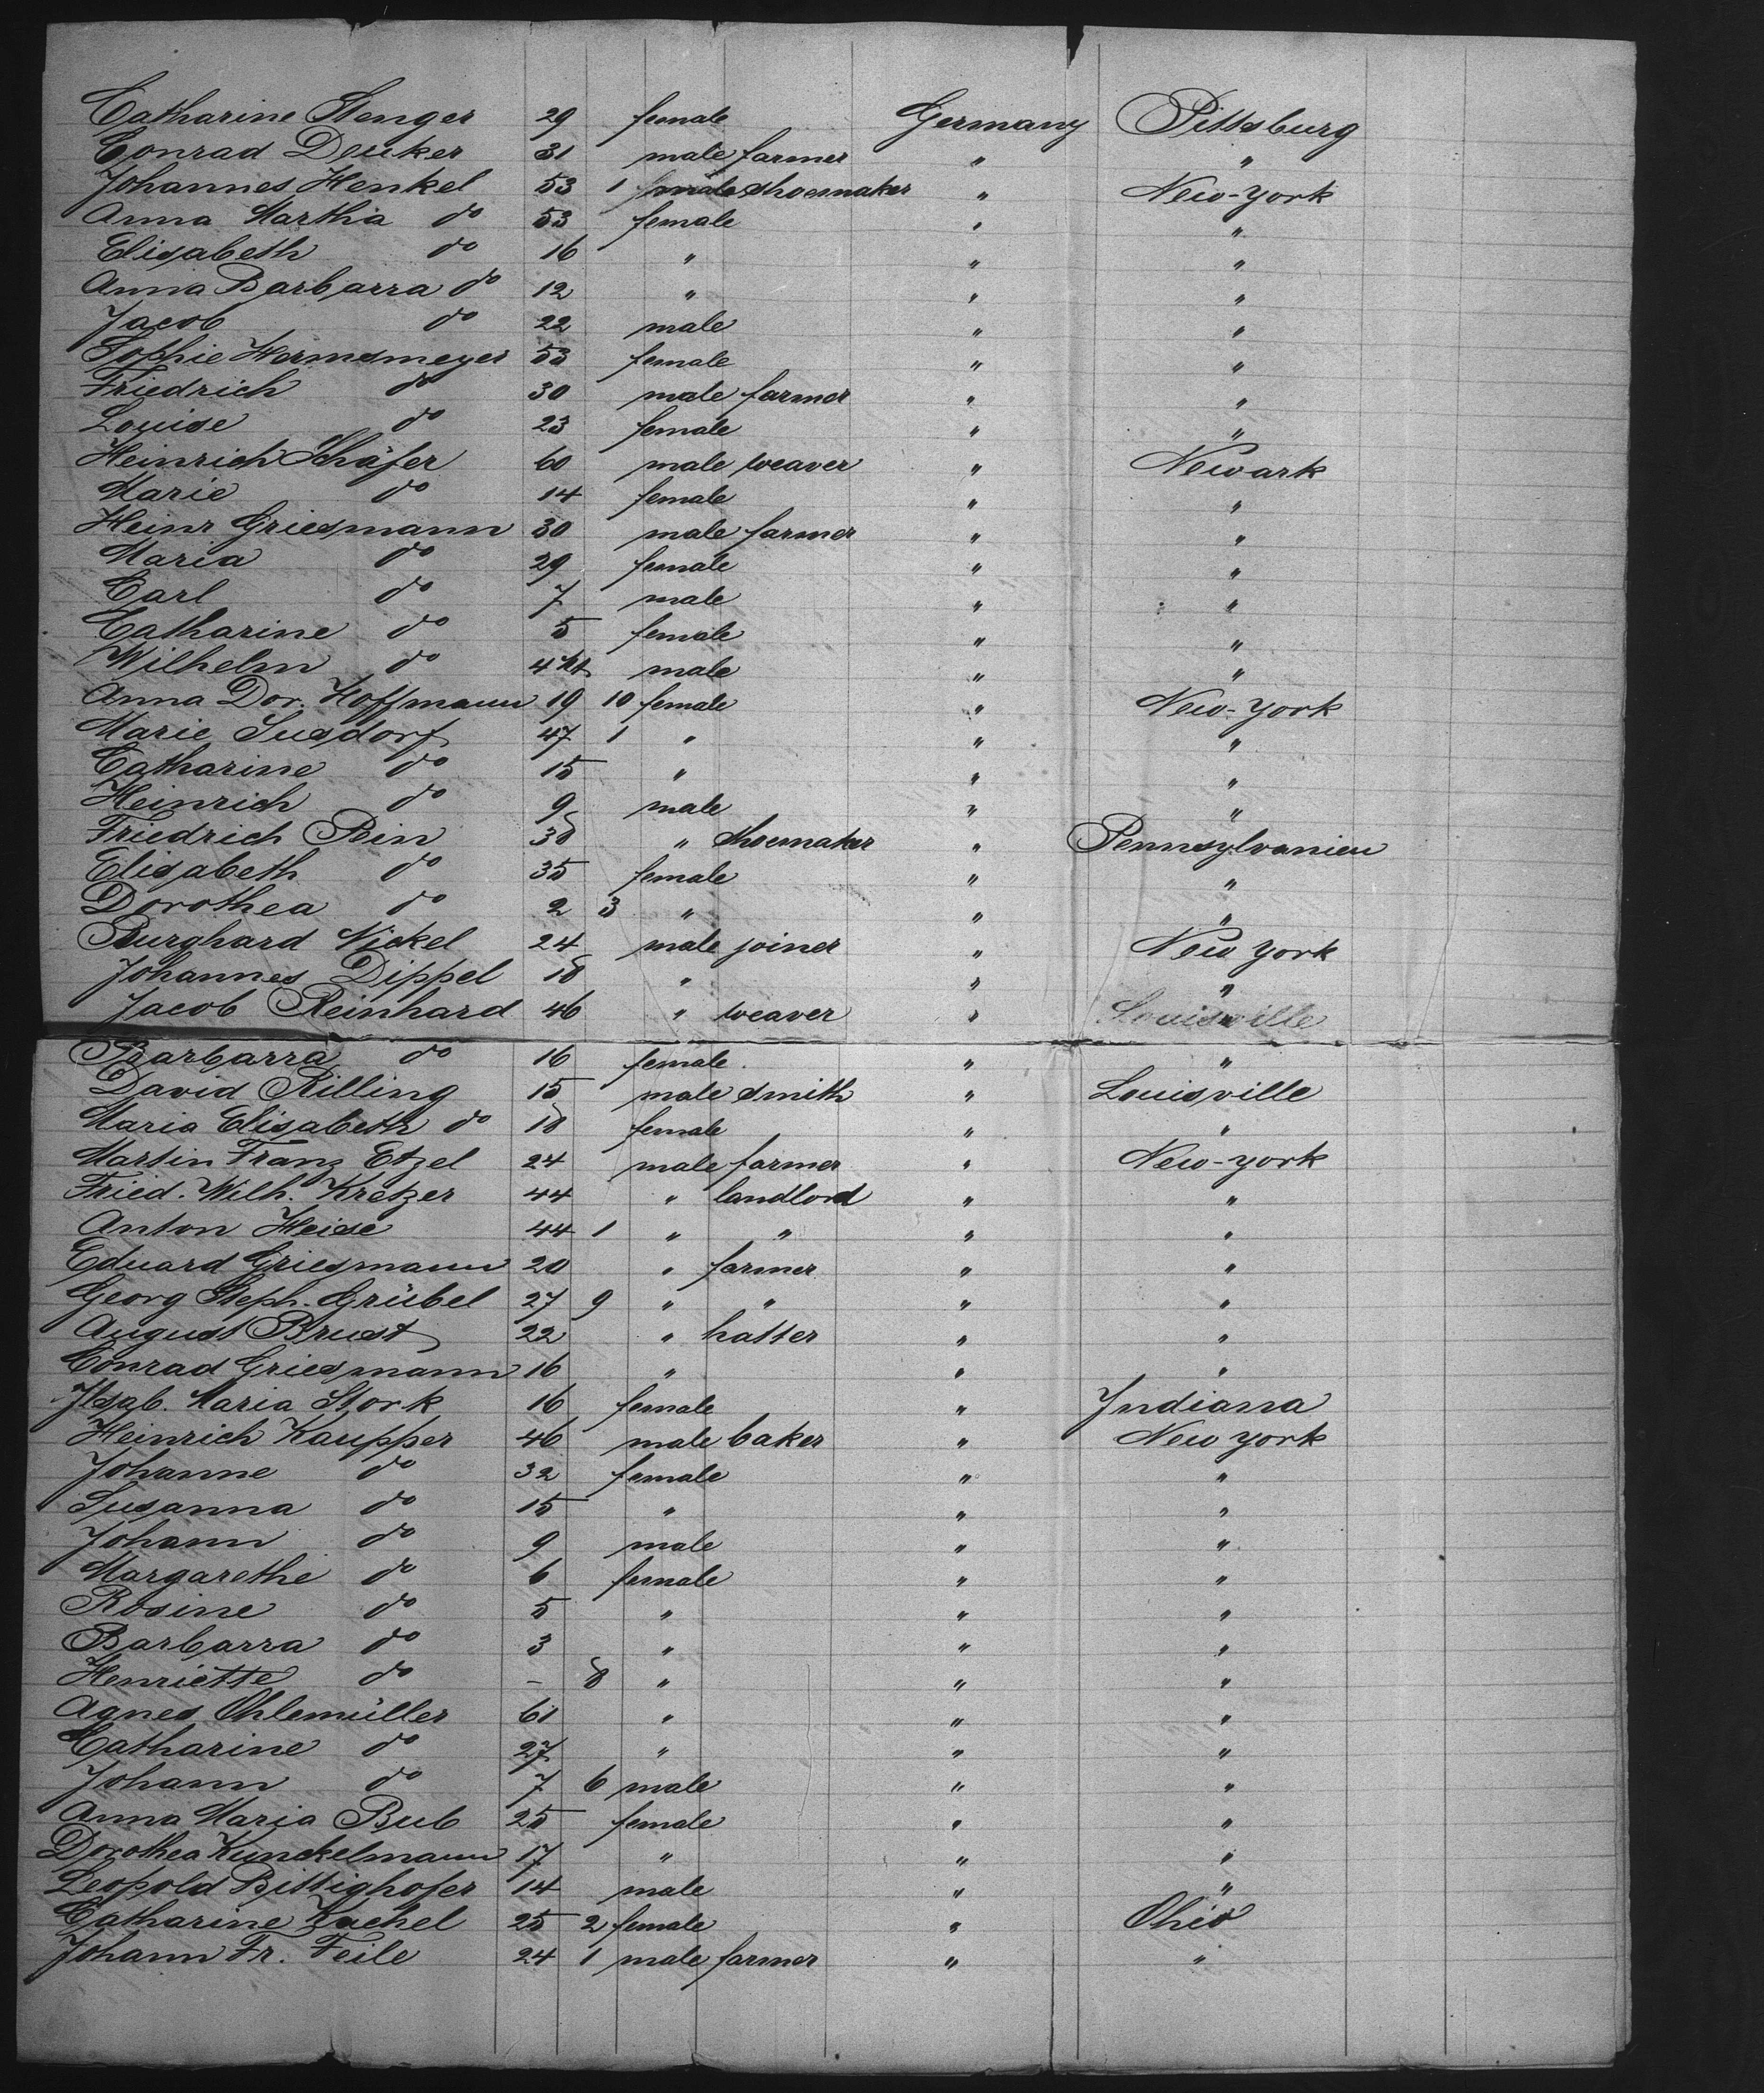 Catharine Stenger 29 female Germany Pittsburg
Conrad Deuker 31 male farmer " "
Johannes Henkel 53 1 male shoemaker " New-York
Anna Martha do 53 female " "
Elisabeth do 16 " " "
Anna Barbarra do 12 " " "
Jacob do 22 male " "
Sophie Hermsmeyer 53 female " "
Friedrich do 30 male farmer " "
Louise do 23 female " "
Heinrich Schäfer 60 male weaver " Newark
Marie do 14 female " "
Heinr Griesmann 30 male farmer " "
Maria do 29 female " "
Carl do 7 male " "
Catharine do 5 female " "
Wilhelm do 4 male " "
Anna Dor. Hoffmann 19 10 female " New-York
Marie Susdorf 47 1 " " "
Catharine do 15 " " "
Heinrich do 9 male " "
Friedrich Bin 38 " shoemaker " Pennsylvanien
Elisabeth do 35 female " "
Dorothea do 2 3 " " "
Burghard Nickel 24 male joiner " New York
Johannes Dippel 18 " " "
Jacob Reinhard 46 " weaver " Louisville
Barbarra do 16 female " "
David Rilling 15 male smith " Louisville
Maria Elisabeth do 18 female " "
Martin Franz Etzel 24 male farmer " New-York
Fried. Wilh. Kretzer 44 " landlord " "
Anton Heise 44 1 " " " "
Eduard Griesmann 20 " farmer " "
Georg Steph. Grübel 27 9 " " " "
August Brust 22 " hatter " "
Conrad Griesmann 16 " " "
Ilsab. Maria Stork 16 female " Indiana
Heinrich Kaupper 46 male baker " New York
Johanne do 32 female " "
Susanna do 15 " " "
Johann do 9 male " "
Margarethe do 6 female " "
Rosine do 5 " " "
Barbarra do 3 " " "
Henriette do - 8 " " "
Agnes Ohlemüller 61 " " "
Catharine do 27 " " "
Johann do 7 6 male " "
Anna Maria Bub 25 female " "
Dorothea Kunckelmann 17 " " "
Leopold Bittighofer 14 male " "
Catharine Kachel 25 2 female " Ohio
Johann Fr. Feile 24 1 male farmer " "